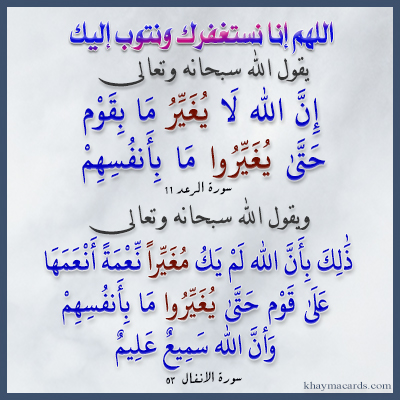 اللهم إنا نستغفرك ونتوب إليك
يقول الله سبحانه وتعالى
إِنَّ الله لَا يُغَيِّرُ مَا بِقَوْم
حَتَّىٰ يُغَيِّرُوا مَا بِأَنفُسِهِمْ
سورة الرعد ١١
ويقول الله سبحانه وتعالى
ذَٰلِكَ بِأَنَّ الله لَمْ يَكُ مُغَيِّراً نِّعْمَةً أَنْعَمَهَا
عَلَىٰ قَوْم حَتَّىٰ يُغَيِّرُوا مَا بِأَنفُسِهِمْ
وَأَنَّ الله سَمِيعٌ عَلِيمٌ
سورة الأنفال ٥٣
khaymacards.com